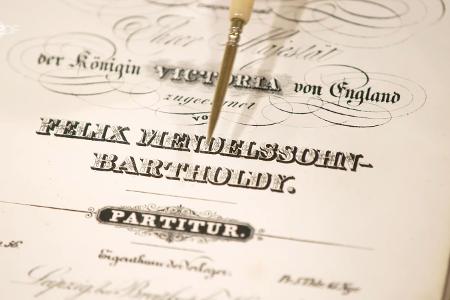 Ihrer Majestät
der Königin VICTORIA von England
zugeeignet
VON
FELIX MENDELSSOHN-
BARTHOLDY.
PARTITUR.
Eigenthum der Verleger.
Leipzig, bei Breitkopf